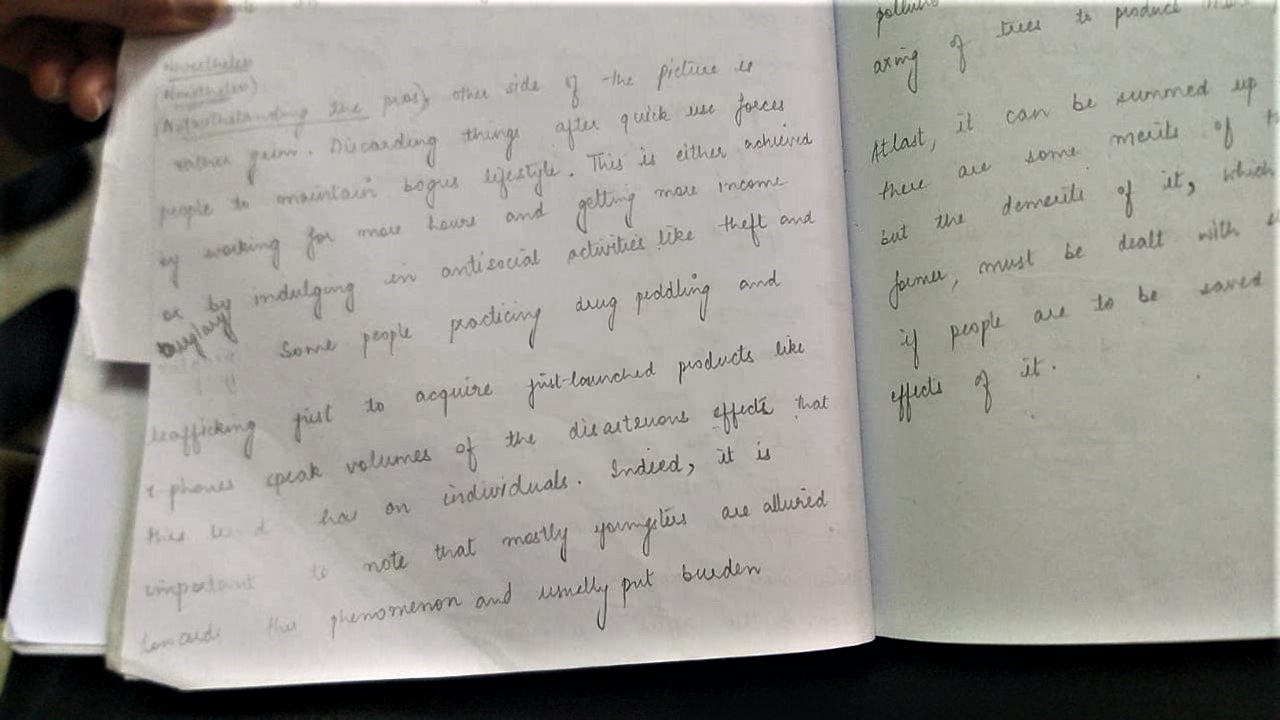 Nevertheless
(Nonetheless)
(Notwithstanding the pros), other side of the picture is
rather grim. Discarding things after quick use forces
people to maintain bogus lifestyle. This is either achieved
by working for more hours and getting more income
or by indulging in antisocial activities like theft and
burglary
Some people practicing drug peddling and
trafficking just to acquire just-launched products like
i-phones speak volumes of the disasterous effects that
this trend has on individuals. Indeed, it is
important to note that mostly youngsters are allured
towards this phenomenon and usually put burden
axing of trees to produce
Atlast, it can be summed up
there are some merits of
but the demerits of it, which
former, must be dealt with
if people are to be saved
effects of it.